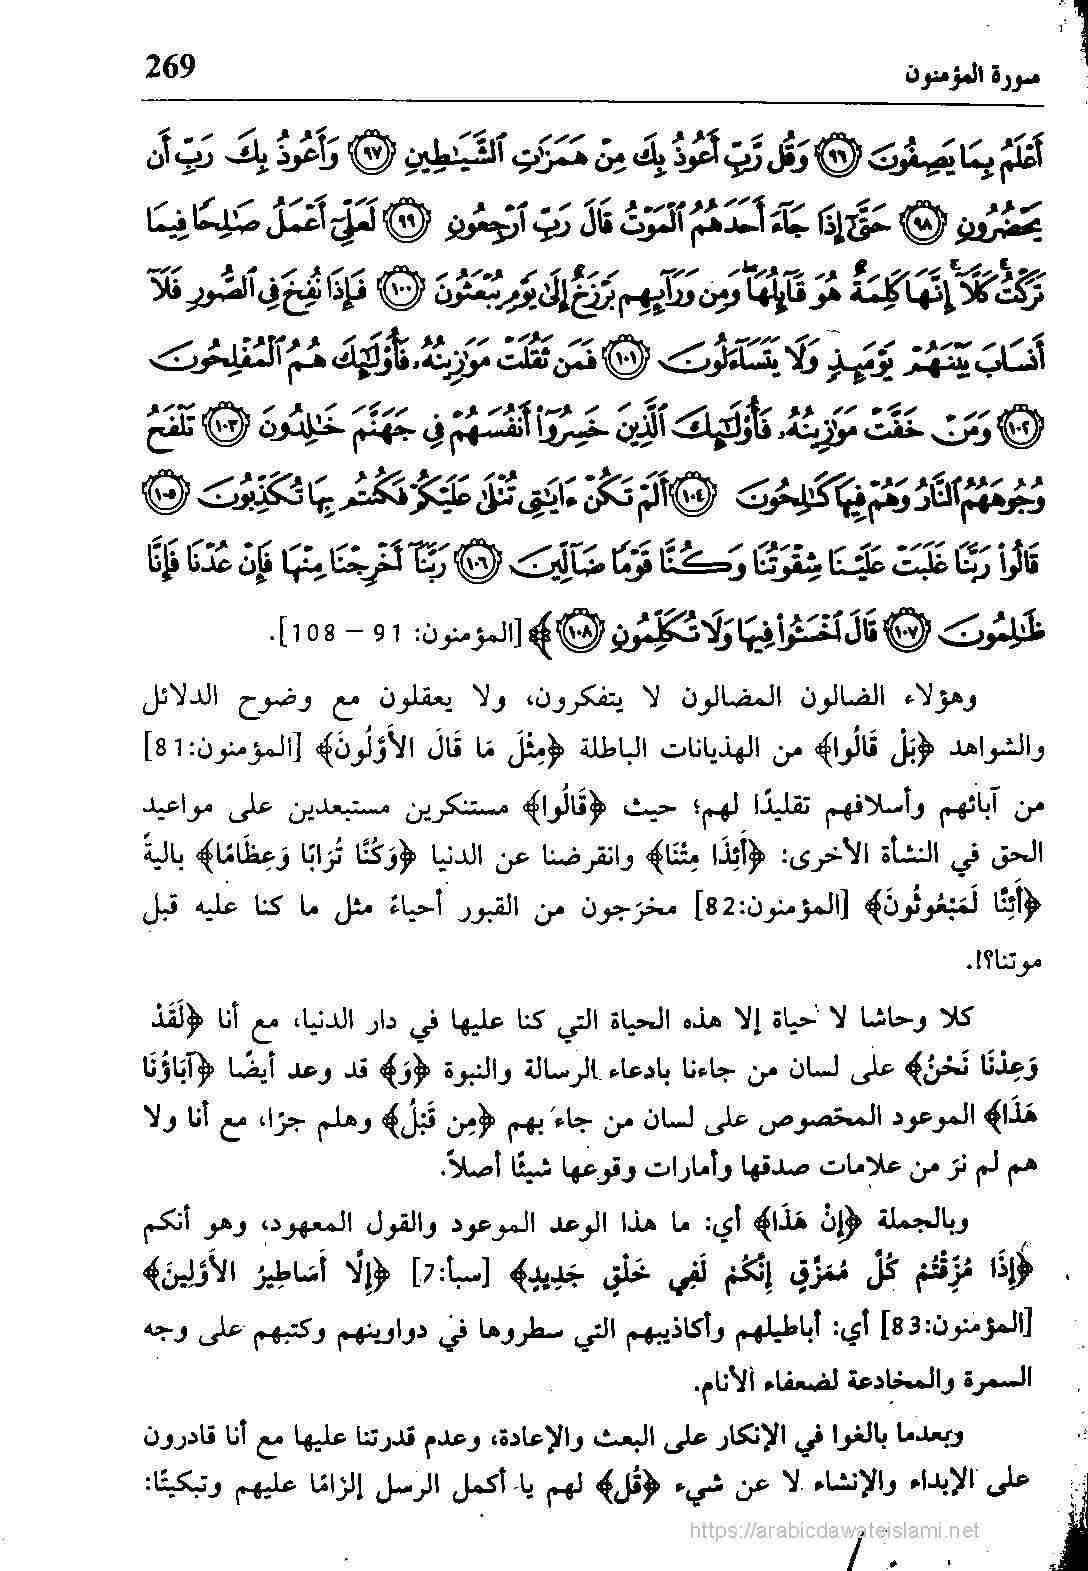 سورة المؤمنون
269
أَعْلَمُ بِمَا يَصِفُونَ ﴿٩٦﴾ وَقُل رَّبِّ أَعُوذُ بِكَ مِنْ هَمَزَاتِ ٱلشَّيَـٰطِينِ ﴿٩٧﴾ وَأَعُوذُ بِكَ رَبِّ أَن
يَحْضُرُونِ ﴿٩٨﴾ حَتَّىٰٓ إِذَا جَآءَ أَحَدَهُمُ ٱلْمَوْتُ قَالَ رَبِّ ٱرْجِعُونِ ﴿٩٩﴾ لَعَلِّىٓ أَعْمَلُ صَـٰلِحًا فِيمَا
تَرَكْتُ ۚ كَلَّآ ۚ إِنَّهَا كَلِمَةٌ هُوَ قَآئِلُهَا ۖ وَمِن وَرَآئِهِم بَرْزَخٌ إِلَىٰ يَوْمِ يُبْعَثُونَ ﴿١٠٠﴾ فَإِذَا نُفِخَ فِى ٱلصُّورِ فَلَآ
أَنسَابَ بَيْنَهُمْ يَوْمَئِذٍ وَلَا يَتَسَآءَلُونَ ﴿١٠١﴾ فَمَن ثَقُلَتْ مَوَٰزِينُهُۥ فَأُو۟لَـٰٓئِكَ هُمُ ٱلْمُفْلِحُونَ
﴿١٠٢﴾ وَمَنْ خَفَّتْ مَوَٰزِينُهُۥ فَأُو۟لَـٰٓئِكَ ٱلَّذِينَ خَسِرُوٓا۟ أَنفُسَهُمْ فِى جَهَنَّمَ خَـٰلِدُونَ ﴿١٠٣﴾ تَلْفَحُ
وُجُوهَهُمُ ٱلنَّارُ وَهُمْ فِيهَا كَـٰلِحُونَ ﴿١٠٤﴾ أَلَمْ تَكُنْ ءَايَـٰتِى تُتْلَىٰ عَلَيْكُمْ فَكُنتُم بِهَا تُكَذِّبُونَ ﴿١٠٥﴾
قَالُوا۟ رَبَّنَا غَلَبَتْ عَلَيْنَا شِقْوَتُنَا وَكُنَّا قَوْمًا ضَآلِّينَ ﴿١٠٦﴾ رَبَّنَآ أَخْرِجْنَا مِنْهَا فَإِنْ عُدْنَا فَإِنَّا
ظَـٰلِمُونَ ﴿١٠٧﴾ قَالَ ٱخْسَـُٔوا۟ فِيهَا وَلَا تُكَلِّمُونِ ﴿١٠٨﴾﴾ [المؤمنون: 91 – 108].
وهؤلاء الضالون المضالون لا يتفكرون، ولا يعقلون مع وضوح الدلائل
والشواهد ﴿بَلْ قَالُوا﴾ من الهذيانات الباطلة ﴿مِثْلَ مَا قَالَ الأَوَّلُونَ﴾ [المؤمنون:81]
من آبائهم وأسلافهم تقليدًا لهم؛ حيث ﴿قَالُوا﴾ مستنكرين مستبعدين على مواعيد
الحق في النشأة الأخرى: ﴿أَئِذَا مِتْنَا﴾ وانقرضنا عن الدنيا ﴿وَكُنَّا تُرَابًا وَعِظَامًا﴾ باليةً
﴿أَئِنَّا لَمَبْعُوثُونَ﴾ [المؤمنون:82] مخرَجون من القبور أحياءً مثل ما كنا عليه قبل
موتنا؟!.
كلا وحاشا لا حياة إلا هذه الحياة التي كنا عليها في دار الدنيا، مع أنا ﴿لَقَدْ
وَعِدْنَا نَحْنُ﴾ على لسان من جاءنا بادعاء الرسالة والنبوة ﴿وَ﴾ قد وعد أيضًا ﴿آبَاؤُنَا
هَذَا﴾ الموعود المخصوص على لسان من جاء بهم ﴿مِن قَبْلُ﴾ وهلم جرًا، مع أنا ولا
هم لم نرَ من علامات صدقها وأمارات وقوعها شيئًا أصلاً.
وبالجملة ﴿إِنْ هَذَا﴾ أي: ما هذا الوعد الموعود والقول المعهود، وهو أنكم
﴿إِذَا مُزِّقْتُمْ كُلَّ مُمَزَّقٍ إِنَّكُمْ لَفِي خَلْقٍ جَدِيدٍ﴾ [سبأ:7] ﴿إِلَّا أَسَاطِيرُ الأَوَّلِينَ﴾
[المؤمنون:83] أي: أباطيلهم وأكاذيبهم التي سطروها في دواوينهم وكتبهم على وجه
السمرة والمخادعة لضعفاء الأنام.
وبعدما بالغوا في الإنكار على البعث والإعادة، وعدم قدرتنا عليها مع أنا قادرون
على الإبداء والإنشاء لا عن شيء ﴿قُل﴾ لهم يا أكمل الرسل إلزامًا عليهم وتبكيتًا:
https://arabicdawateislami.net